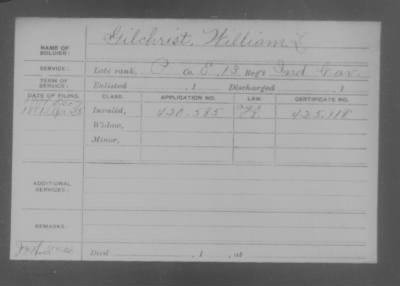 NAME OF SOLDIER: Gilchrist, William L
SERVICE: Late rank, P Co. E, 13 Reg't Ind Cav.
TERM OF SERVICE: Enlisted , 1 Discharged 1
DATE OF FILING. CLASS. APPLICATION NO. LAW. CERTIFICATE NO.
Invalid, 420.585 425.118
Widow,
Minor,
ADDITIONAL SERVICES:
REMARKS:
Died , 1 , at